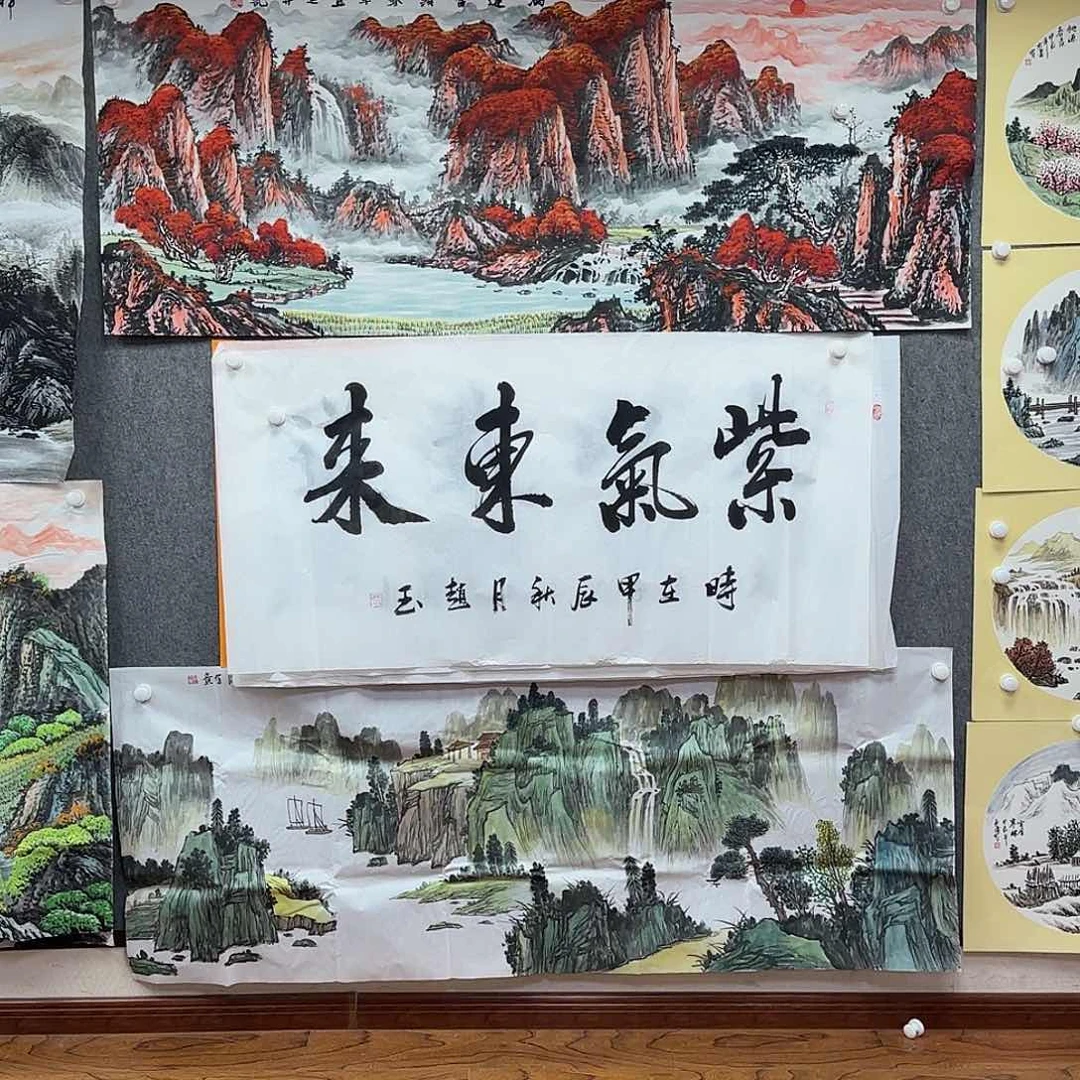 紫氣東来
時在甲辰秋月趙玉